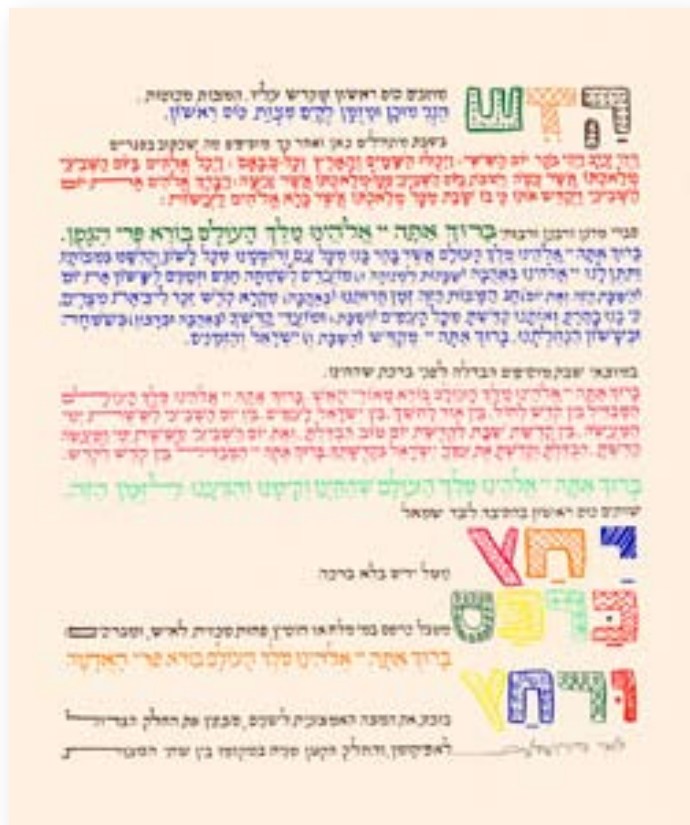 קַדֵּשׁ
מוזגים כוס ראשון ומקדש עליו. המצות מכוסות.
הִנְנִי מוּכָן וּמְזֻמָּן לְקַיֵּם מִצְוַת כּוֹס רִאשׁוֹן.
בשבת מתחילים כאן ואחר כך מוסיפים מה שכתוב בסגריים
וַיְהִי עֶרֶב וַיְהִי בֹקֶר יוֹם הַשִּׁשִּׁי: וַיְכֻלּוּ הַשָּׁמַיִם וְהָאָרֶץ וְכָל צְבָאָם: וַיְכַל אֱלֹהִים בַּיּוֹם הַשְּׁבִיעִי
מְלַאכְתּוֹ אֲשֶׁר עָשָׂה וַיִּשְׁבֹּת בַּיּוֹם הַשְּׁבִיעִי מִכָּל מְלַאכְתּוֹ אֲשֶׁר עָשָׂה: וַיְבָרֶךְ אֱלֹהִים אֶת יוֹם
הַשְּׁבִיעִי וַיְקַדֵּשׁ אֹתוֹ כִּי בוֹ שָׁבַת מִכָּל מְלַאכְתּוֹ אֲשֶׁר בָּרָא אֱלֹהִים לַעֲשׂוֹת:
סברי מרנן ורבנן ורבותי בָּרוּךְ אַתָּה יי אֱלֹהֵינוּ מֶלֶךְ הָעוֹלָם בּוֹרֵא פְּרִי הַגָּפֶן.
בָּרוּךְ אַתָּה יי אֱלֹהֵינוּ מֶלֶךְ הָעוֹלָם אֲשֶׁר בָּחַר בָּנוּ מִכָּל עָם וְרוֹמְמָנוּ מִכָּל לָשׁוֹן וְקִדְּשָׁנוּ בְּמִצְוֹתָיו
וַתִּתֶּן לָנוּ יי אֱלֹהֵינוּ בְּאַהֲבָה (שַׁבָּתוֹת לִמְנוּחָה וּ)מוֹעֲדִים לְשִׂמְחָה חַגִּים וּזְמַנִּים לְשָׂשׂוֹן אֶת יוֹם
(הַשַּׁבָּת הַזֶּה וְאֶת יוֹם) חַג הַמַּצּוֹת הַזֶּה זְמַן חֵרוּתֵנוּ (בְּאַהֲבָה) מִקְרָא קֹדֶשׁ זֵכֶר לִיצִיאַת מִצְרָיִם.
כִּי בָנוּ בָחַרְתָּ וְאוֹתָנוּ קִדַּשְׁתָּ מִכָּל הָעַמִּים (וְשַׁבָּת) וּמוֹעֲדֵי קָדְשֶׁךָ (בְּאַהֲבָה וּבְרָצוֹן) בְּשִׂמְחָה
וּבְשָׂשׂוֹן הִנְחַלְתָּנוּ. בָּרוּךְ אַתָּה יי מְקַדֵּשׁ (הַשַּׁבָּת וְ)יִשְׂרָאֵל וְהַזְּמַנִּים.
במוצאי שבת מוסיפים הבדלה לפני ברכת שהחינו.
בָּרוּךְ אַתָּה יי אֱלֹהֵינוּ מֶלֶךְ הָעוֹלָם בּוֹרֵא מְאוֹרֵי הָאֵשׁ. בָּרוּךְ אַתָּה יי אֱלֹהֵינוּ מֶלֶךְ הָעוֹלָם
הַמַּבְדִּיל בֵּין קֹדֶשׁ לְחֹל, בֵּין אוֹר לְחֹשֶׁךְ, בֵּין יִשְׂרָאֵל לָעַמִּים, בֵּין יוֹם הַשְּׁבִיעִי לְשֵׁשֶׁת יְמֵי
הַמַּעֲשֶׂה. בֵּין קְדֻשַּׁת שַׁבָּת לִקְדֻשַּׁת יוֹם טוֹב הִבְדַּלְתָּ. וְאֶת יוֹם הַשְּׁבִיעִי מִשֵּׁשֶׁת יְמֵי הַמַּעֲשֶׂה
קִדַּשְׁתָּ. הִבְדַּלְתָּ וְקִדַּשְׁתָּ אֶת עַמְּךָ יִשְׂרָאֵל בִּקְדֻשָּׁתֶךָ. בָּרוּךְ אַתָּה יי הַמַּבְדִּיל בֵּין קֹדֶשׁ לְקֹדֶשׁ.
בָּרוּךְ אַתָּה יי אֱלֹהֵינוּ מֶלֶךְ הָעוֹלָם שֶׁהֶחֱיָנוּ וְקִיְּמָנוּ וְהִגִּיעָנוּ לַזְּמַן הַזֶּה.
שותים כוס ראשון בהסיבה לצד שמאל
יַחַץ
נוטל ידיו בלא ברכה
כַּרְפַּס
טובל כרפס במי מלח או חומץ פחות מכזית לאיש, ומברכים
בָּרוּךְ אַתָּה יי אֱלֹהֵינוּ מֶלֶךְ הָעוֹלָם בּוֹרֵא פְּרִי הָאֲדָמָה
וּרְחַץ
בוצע את המצה האמצעית לשנים, מצפין את החלק הגדול
לאפיקומן, והחלק הקטן מניח במקומו בין שתי המצות